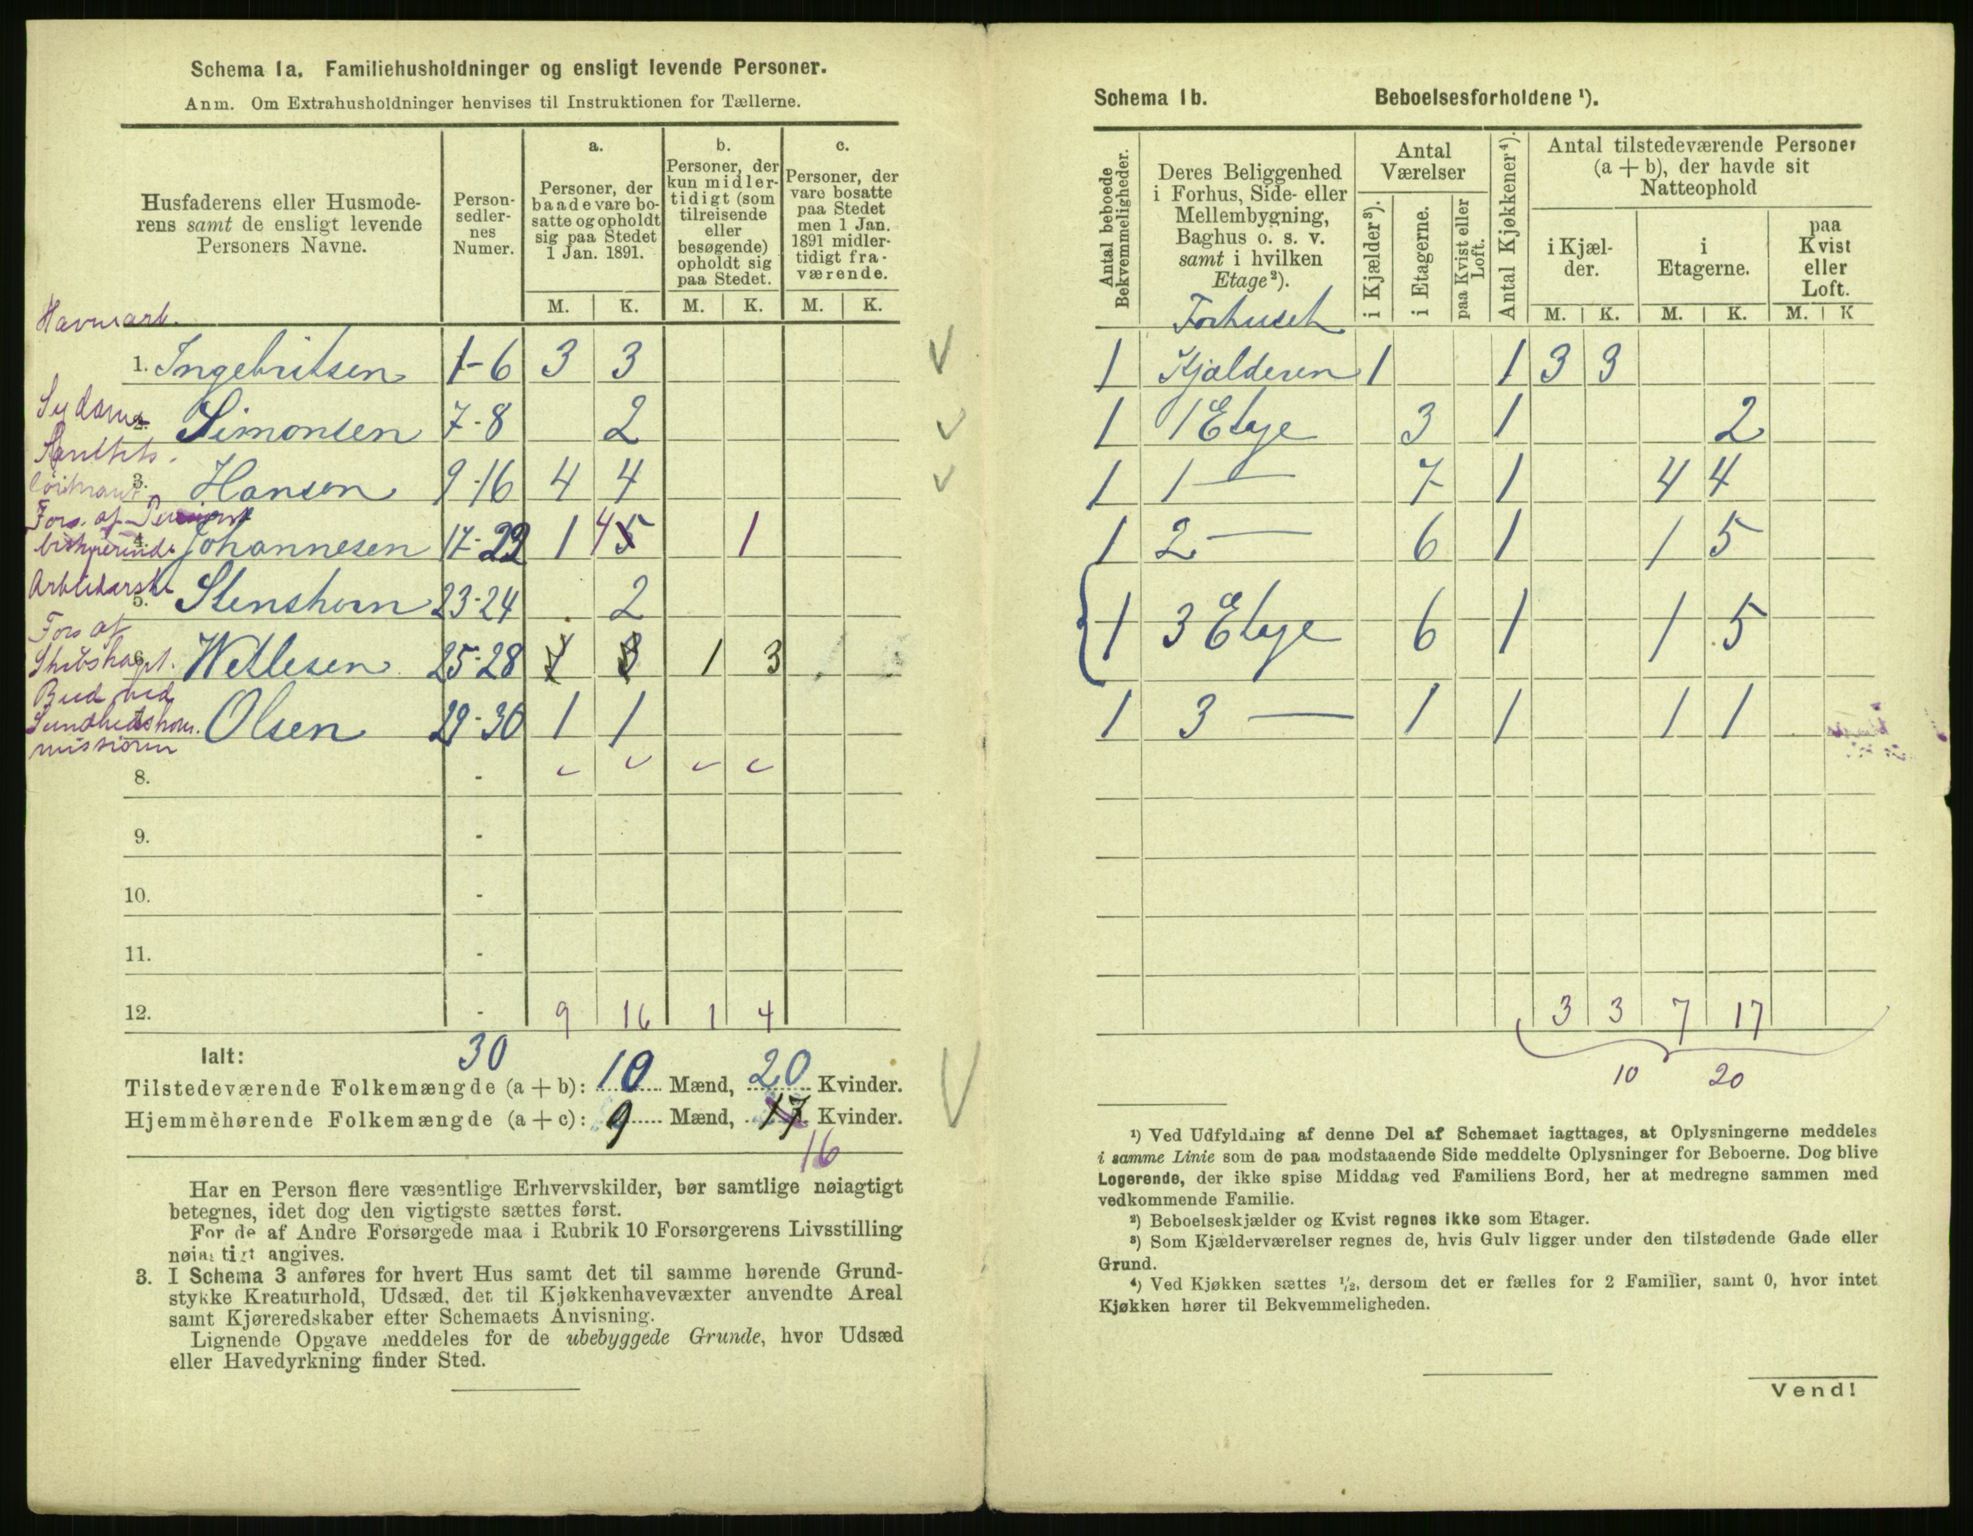 Schema 1a. Familiehusholdninger og ensligt levende Personer.
Anm. Om Extrahusholdninger henvises til Instruktionen for Tællerne.
Husfaderens eller Husmoderens samt de ensligt levende Personers Navne.
Personsedlernes Numer.
a. Personer, der baade vare bosatte og opholdt sig paa Stedet 1 Jan. 1891.
b. Personer, der kun midlertidigt (som tilreisende eller besøgende) opholdt sig paa Stedet.
c. Personer, der vare bosatte paa Stedet men 1 Jan. 1891 midlertidigt fraværende.
M. K. M. K. M. K.
Havnearb.
1. Ingebritsen 1-6 3 3
Sydame
2. Simonsen 7-8 2
3. Hansen 9-16 4 4
Fors. af
4. Johannesen 17-22 1 4 5 1
5. Stenshorn 23-24 2
Fors af
Skibskapt.
6. Wetlesen 25-28 1 3 1 3
Bud ved
Sundhedskom.
missionen
7. Olsen 29-30 1 1
8. -
9. -
10. -
11. -
12. - 9 16 1 4
Ialt: 30
Tilstedeværende Folkemængde (a + b): 10 Mænd, 20 Kvinder.
Hjemmehørende Folkemængde (a + c): 9 Mænd, 17 Kvinder.
16
Har en Person flere væsentlige Erhvervskilder, bør samtlige nøiagtigt
betegnes, idet dog den vigtigste sættes først.
For de af Andre Forsørgede maa i Rubrik 10 Forsørgerens Livsstilling
nøiagtigt angives.
3. I Schema 3 anføres for hvert Hus samt det til samme hørende Grund-
stykke Kreaturhold, Udsæd, det til Kjøkkenhavevæxter anvendte Areal
samt Kjøreredskaber efter Schemaets Anvisning.
Lignende Opgave meddeles for de ubebyggede Grunde, hvor Udsæd
eller Havedyrkning finder Sted.
Schema 1b. Beboelsesforholdene ¹).
Antal beboede Bekvemmeligheder.
Deres Beliggenhed i Forhus, Side- eller Mellembygning, Baghus o. s. v. samt i hvilken Etage ²).
Antal Værelser
i Kjælder ³).
i Etagerne.
paa Kvist eller Loft.
Antal Kjøkkener ⁴).
Antal tilstedeværende Personer (a + b), der havde sit Natteophold
i Kjælder.
i Etagerne.
paa Kvist eller Loft.
M. K. M. K. M. K
Forhuset
1 Kjælderen 1 1 3 3
1 1 Etage 3 1 2
1 1 — 7 1 4 4
1 2 — 6 1 1 5
1 3 Etage 6 1 1 5
1 3 — 1 1 1 1
3 3 7 17
10 20
¹) Ved Udfyldning af denne Del af Schemaet iagttages, at Oplysningerne meddeles
i samme Linie som de paa modstaaende Side meddelte Oplysninger for Beboerne. Dog blive
Logerende, der ikke spise Middag ved Familiens Bord, her at medregne sammen med
vedkommende Familie.
²) Beboelseskjælder og Kvist regnes ikke som Etager.
³) Som Kjælderværelser regnes de, hvis Gulv ligger under den tilstødende Gade eller
Grund.
⁴) Ved Kjøkken sættes ½, dersom det er fælles for 2 Familier, samt 0, hvor intet
Kjøkken hører til Bekvemmeligheden.
Vend!